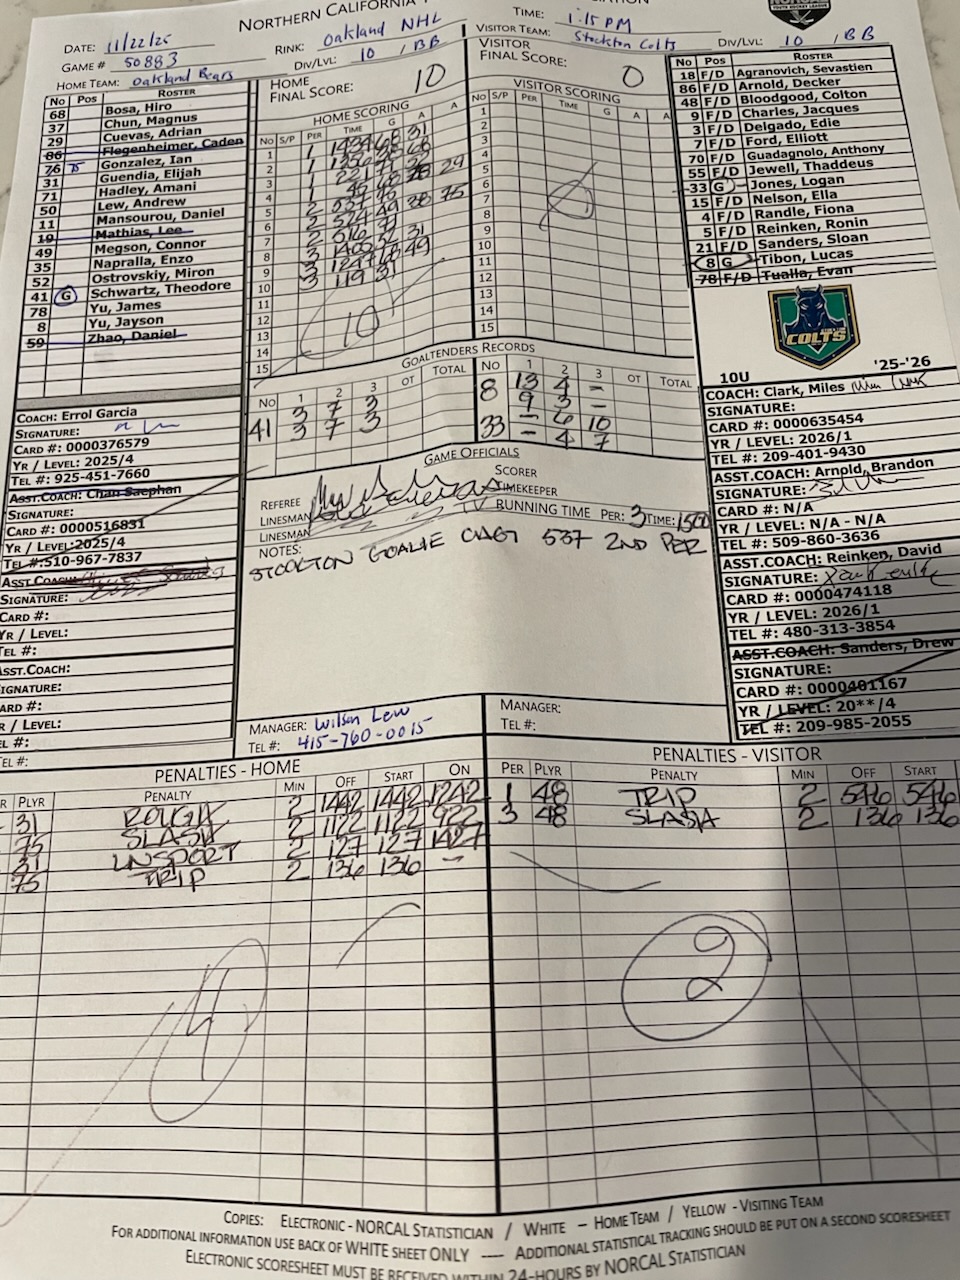 NORTHERN CALIFORNIA
DATE: 11/22/25
RINK: Oakland NHL
TIME: 1:15 PM
GAME # 50883
DIV/LVL: 10 / BB
VISITOR TEAM: Stockton Colts
DIV/LVL: 10 / BB
HOME TEAM: Oakland Bears
HOME
FINAL SCORE: 10
VISITOR
FINAL SCORE: 0
No Pos ROSTER
68 Bosa, Hiro
37 Chun, Magnus
29 Cuevas, Adrian
86 Flegenheimer, Caden
76 75 Gonzalez, Ian
31 Guendia, Elijah
71 Hadley, Amani
50 Lew, Andrew
11 Mansourou, Daniel
19 Mathias, Lee
49 Megson, Connor
35 Napralla, Enzo
52 Ostrovskiy, Miron
41 G Schwartz, Theodore
78 Yu, James
8 Yu, Jayson
59 Zhao, Daniel
HOME SCORING
No S/P PER TIME G A A
1 1
2 1
3 1
4 1
5 2 537
6 2 524 49
7 2
8 3
9 3
10 3 119 31
11
12
13
14
15
10
VISITOR SCORING
No S/P PER TIME G A A
1
2
3
4
5
6
7
8
9
10
11
12
13
14
15
No Pos ROSTER
18 F/D Agranovich, Sevastien
86 F/D Arnold, Decker
48 F/D Bloodgood, Colton
9 F/D Charles, Jacques
3 F/D Delgado, Edie
7 F/D Ford, Elliott
70 F/D Guadagnolo, Anthony
55 F/D Jewell, Thaddeus
33 G Jones, Logan
15 F/D Nelson, Ella
4 F/D Randle, Fiona
5 F/D Reinken, Ronin
21 F/D Sanders, Sloan
8 G Tibon, Lucas
78 F/D Tualla, Evan
COLTS
10U '25-'26
GOALTENDERS RECORDS
No 1 2 3 OT TOTAL
3 7 3
41 3 7 3
NO 1 2 3 OT TOTAL
8 13 4 –
9 3 –
33 – 6 10
– 4 7
GAME OFFICIALS
REFEREE
SCORER
LINESMAN
TIMEKEEPER
LINESMAN
RUNNING TIME PER: 3 TIME: 1500
NOTES:
STOCKTON GOALIE CHNG 537 2ND PER
COACH: Errol Garcia
SIGNATURE:
CARD #: 0000376579
YR / LEVEL: 2025/4
TEL #: 925-451-7660
ASST.COACH: Chan Saephan
SIGNATURE:
CARD #: 0000516831
YR / LEVEL:2025/4
TEL #:510-967-7837
ASST COACH:
SIGNATURE:
CARD #:
YR / LEVEL:
TEL #:
ASST.COACH:
SIGNATURE:
CARD #:
YR / LEVEL:
TEL #:
COACH: Clark, Miles
SIGNATURE:
CARD #: 0000635454
YR / LEVEL: 2026/1
TEL #: 209-401-9430
ASST.COACH: Arnold, Brandon
SIGNATURE:
CARD #: N/A
YR / LEVEL: N/A - N/A
TEL #: 509-860-3636
ASST.COACH: Reinken, David
SIGNATURE:
CARD #: 0000474118
YR / LEVEL: 2026/1
TEL #: 480-313-3854
ASST.COACH: Sanders, Drew
SIGNATURE:
CARD #: 0000401167
YR / LEVEL: 20**/4
TEL #: 209-985-2055
MANAGER: Wilson Lew
TEL #: 415-760-0015
MANAGER:
TEL #:
PENALTIES - HOME
PLYR PENALTY MIN OFF START ON
31 ROUGH 2 1442 1442 1242
75 SLASH 2 1122 1122 922
31 UNSPORT 2 127 127 1427
75 TRIP 2 136 136 –
4
PENALTIES - VISITOR
PER PLYR PENALTY MIN OFF START
1 48 TRIP 2 546 546
3 48 SLASH 2 136 136
2
COPIES: ELECTRONIC - NORCAL STATISTICIAN / WHITE – HOME TEAM / YELLOW - VISITING TEAM
FOR ADDITIONAL INFORMATION USE BACK OF WHITE SHEET ONLY ---- ADDITIONAL STATISTICAL TRACKING SHOULD BE PUT ON A SECOND SCORESHEET
ELECTRONIC SCORESHEET MUST BE RECEIVED WITHIN 24-HOURS BY NORCAL STATISTICIAN